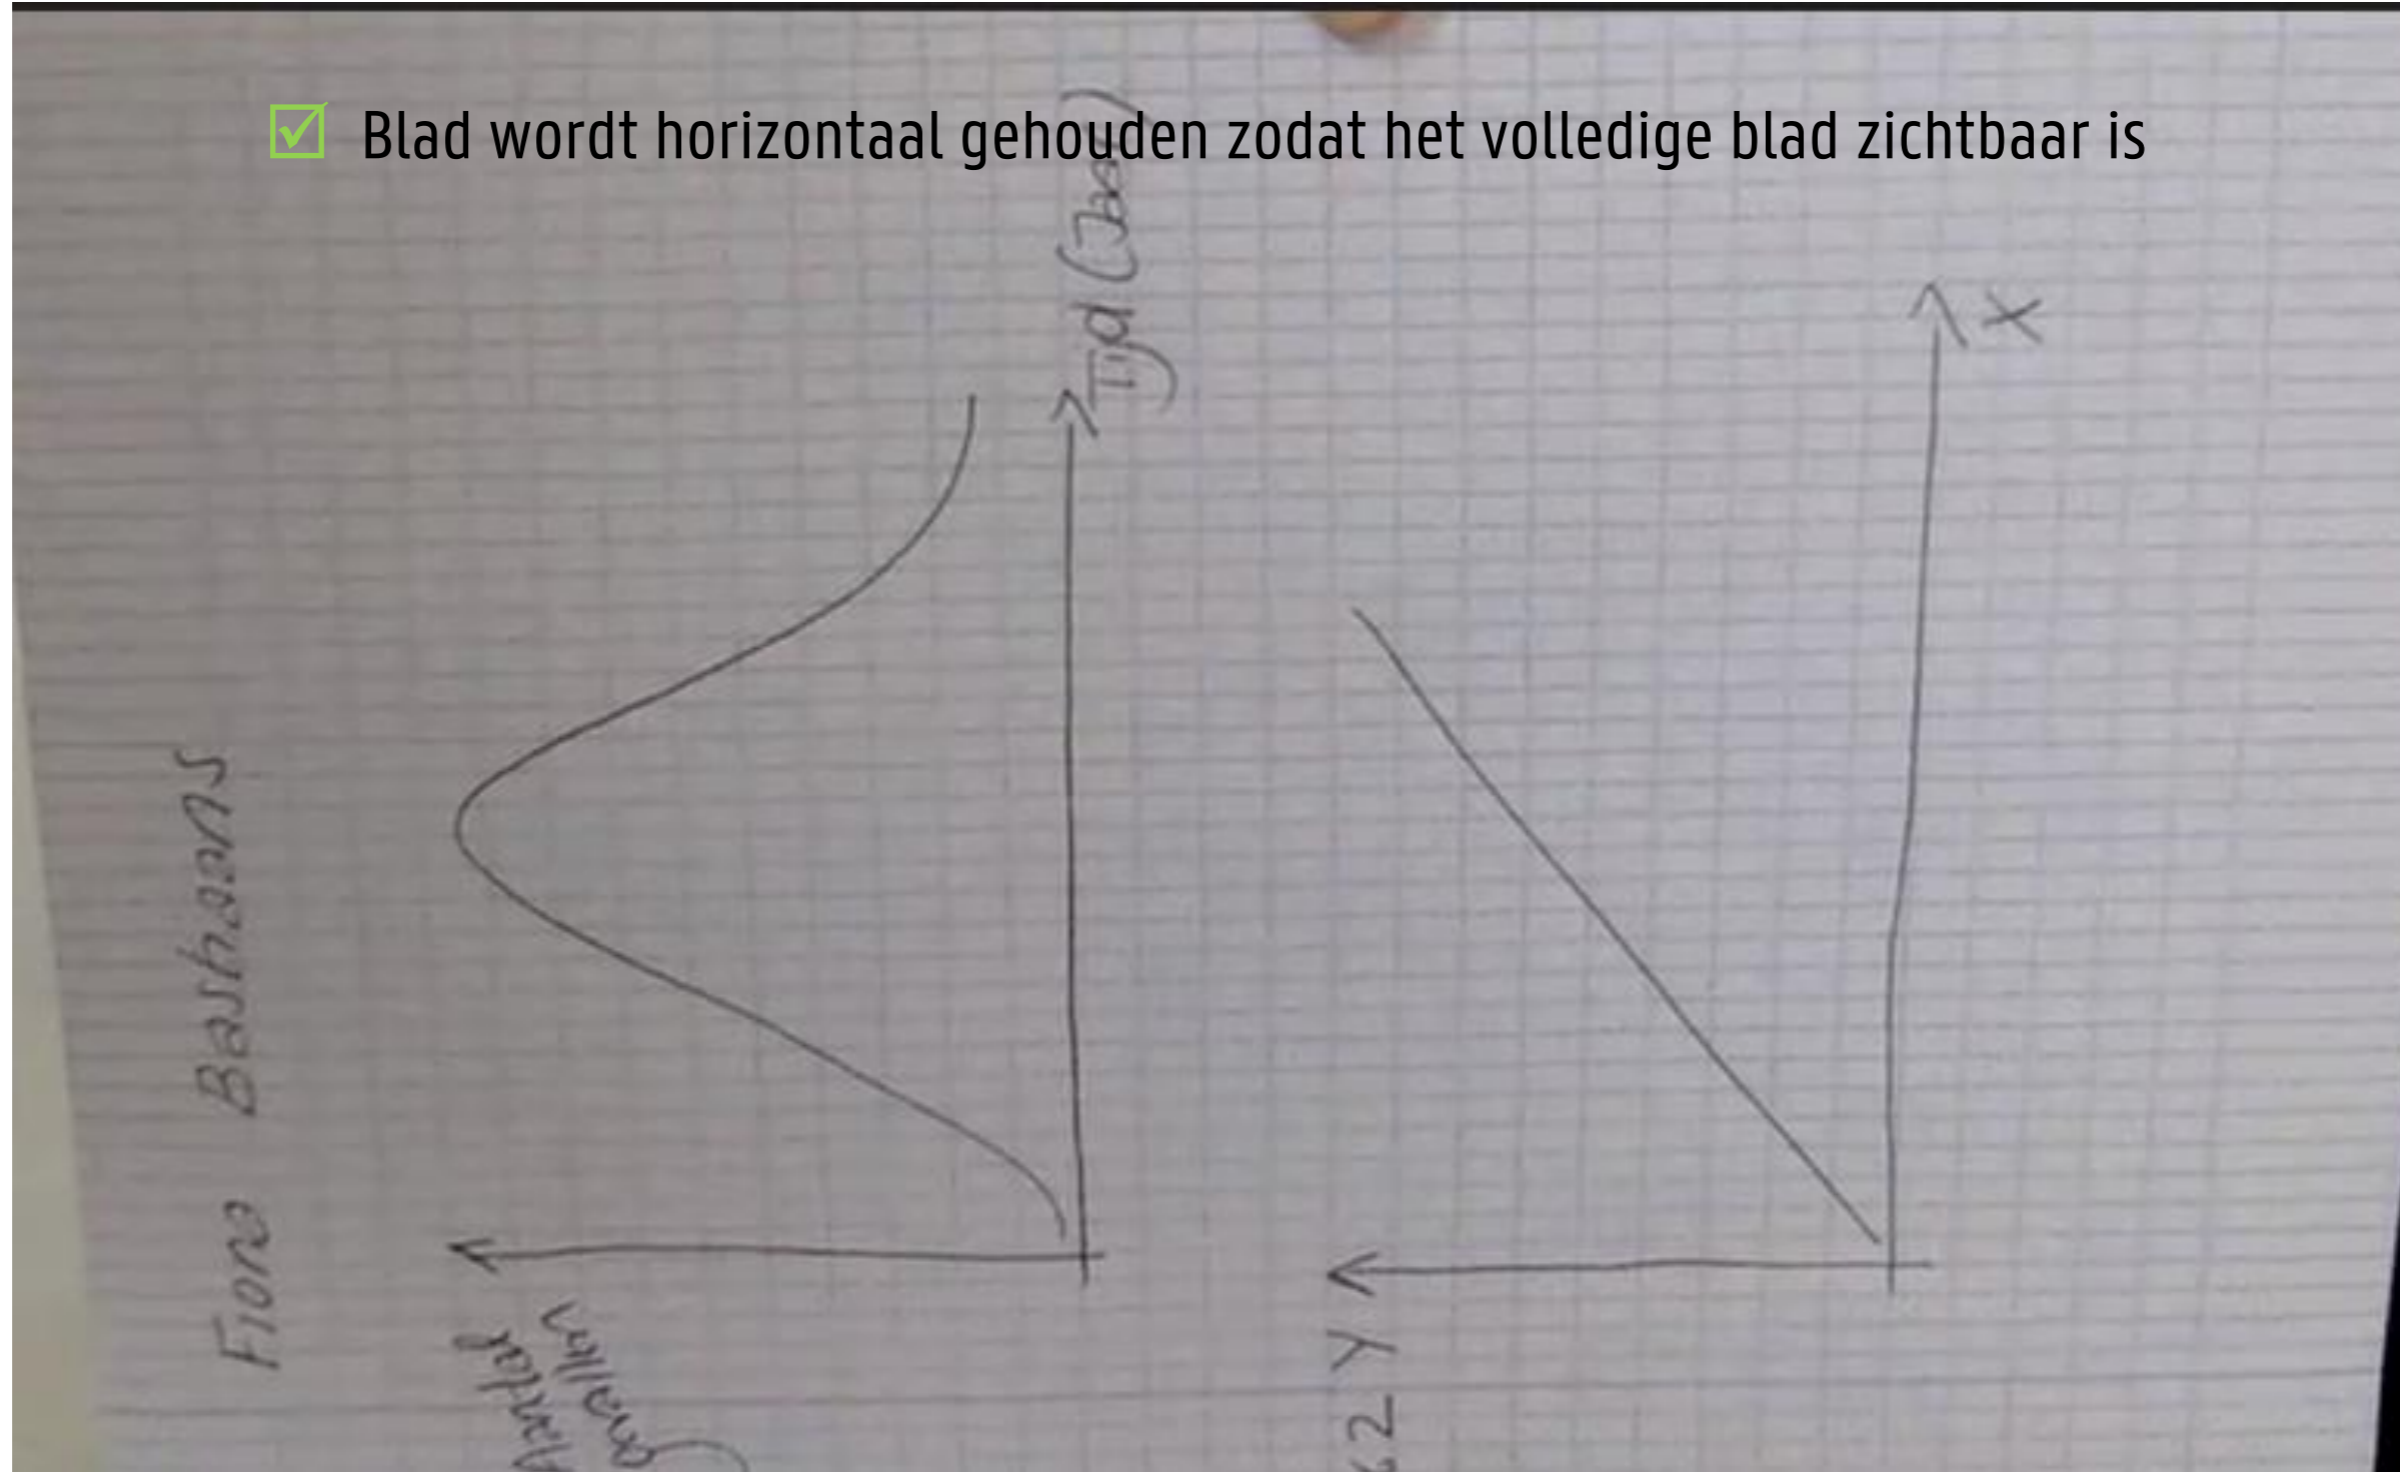 Blad wordt horizontaal gehouden zodat het volledige blad zichtbaar is
Fiona Bastiaans
Aantal
Tijd (Jaar)
62 Y
X